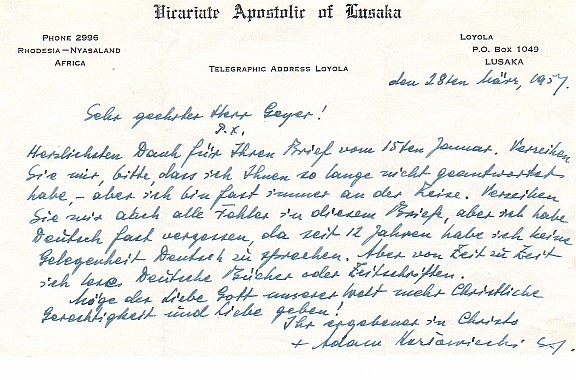 Vicariate Apostolic of Lusaka
Phone 2996
Rhodesia—Nyasaland
Africa
Telegraphic Address Loyola
Loyola
P.O. Box 1049
Lusaka
den 28ten März, 1957.
Sehr geehrter Herr Geyer!
P.X.
Herzlichsten Dank für Ihren Brief vom 15ten Januar. Verzeihen
Sie mir, bitte, dass ich Ihnen so lange nicht geantwortet
habe, – aber ich bin fast immer an der Reise. Verzeihen
Sie mir auch alle Fehler in diesem Briefe, aber ich habe
Deutsch fast vergessen, da seit 12 Jahren habe ich keine
Gelegenheit Deutsch zu sprechen. Aber von Zeit zu Zeit
ich lese Deutsche Bücher oder Zeitschriften.
Möge der Liebe Gott unserer Welt mehr Christliche
Gerechtigkeit und Liebe geben!
Ihr ergebener in Christo
+ Adam Kozłowiecki S.J.